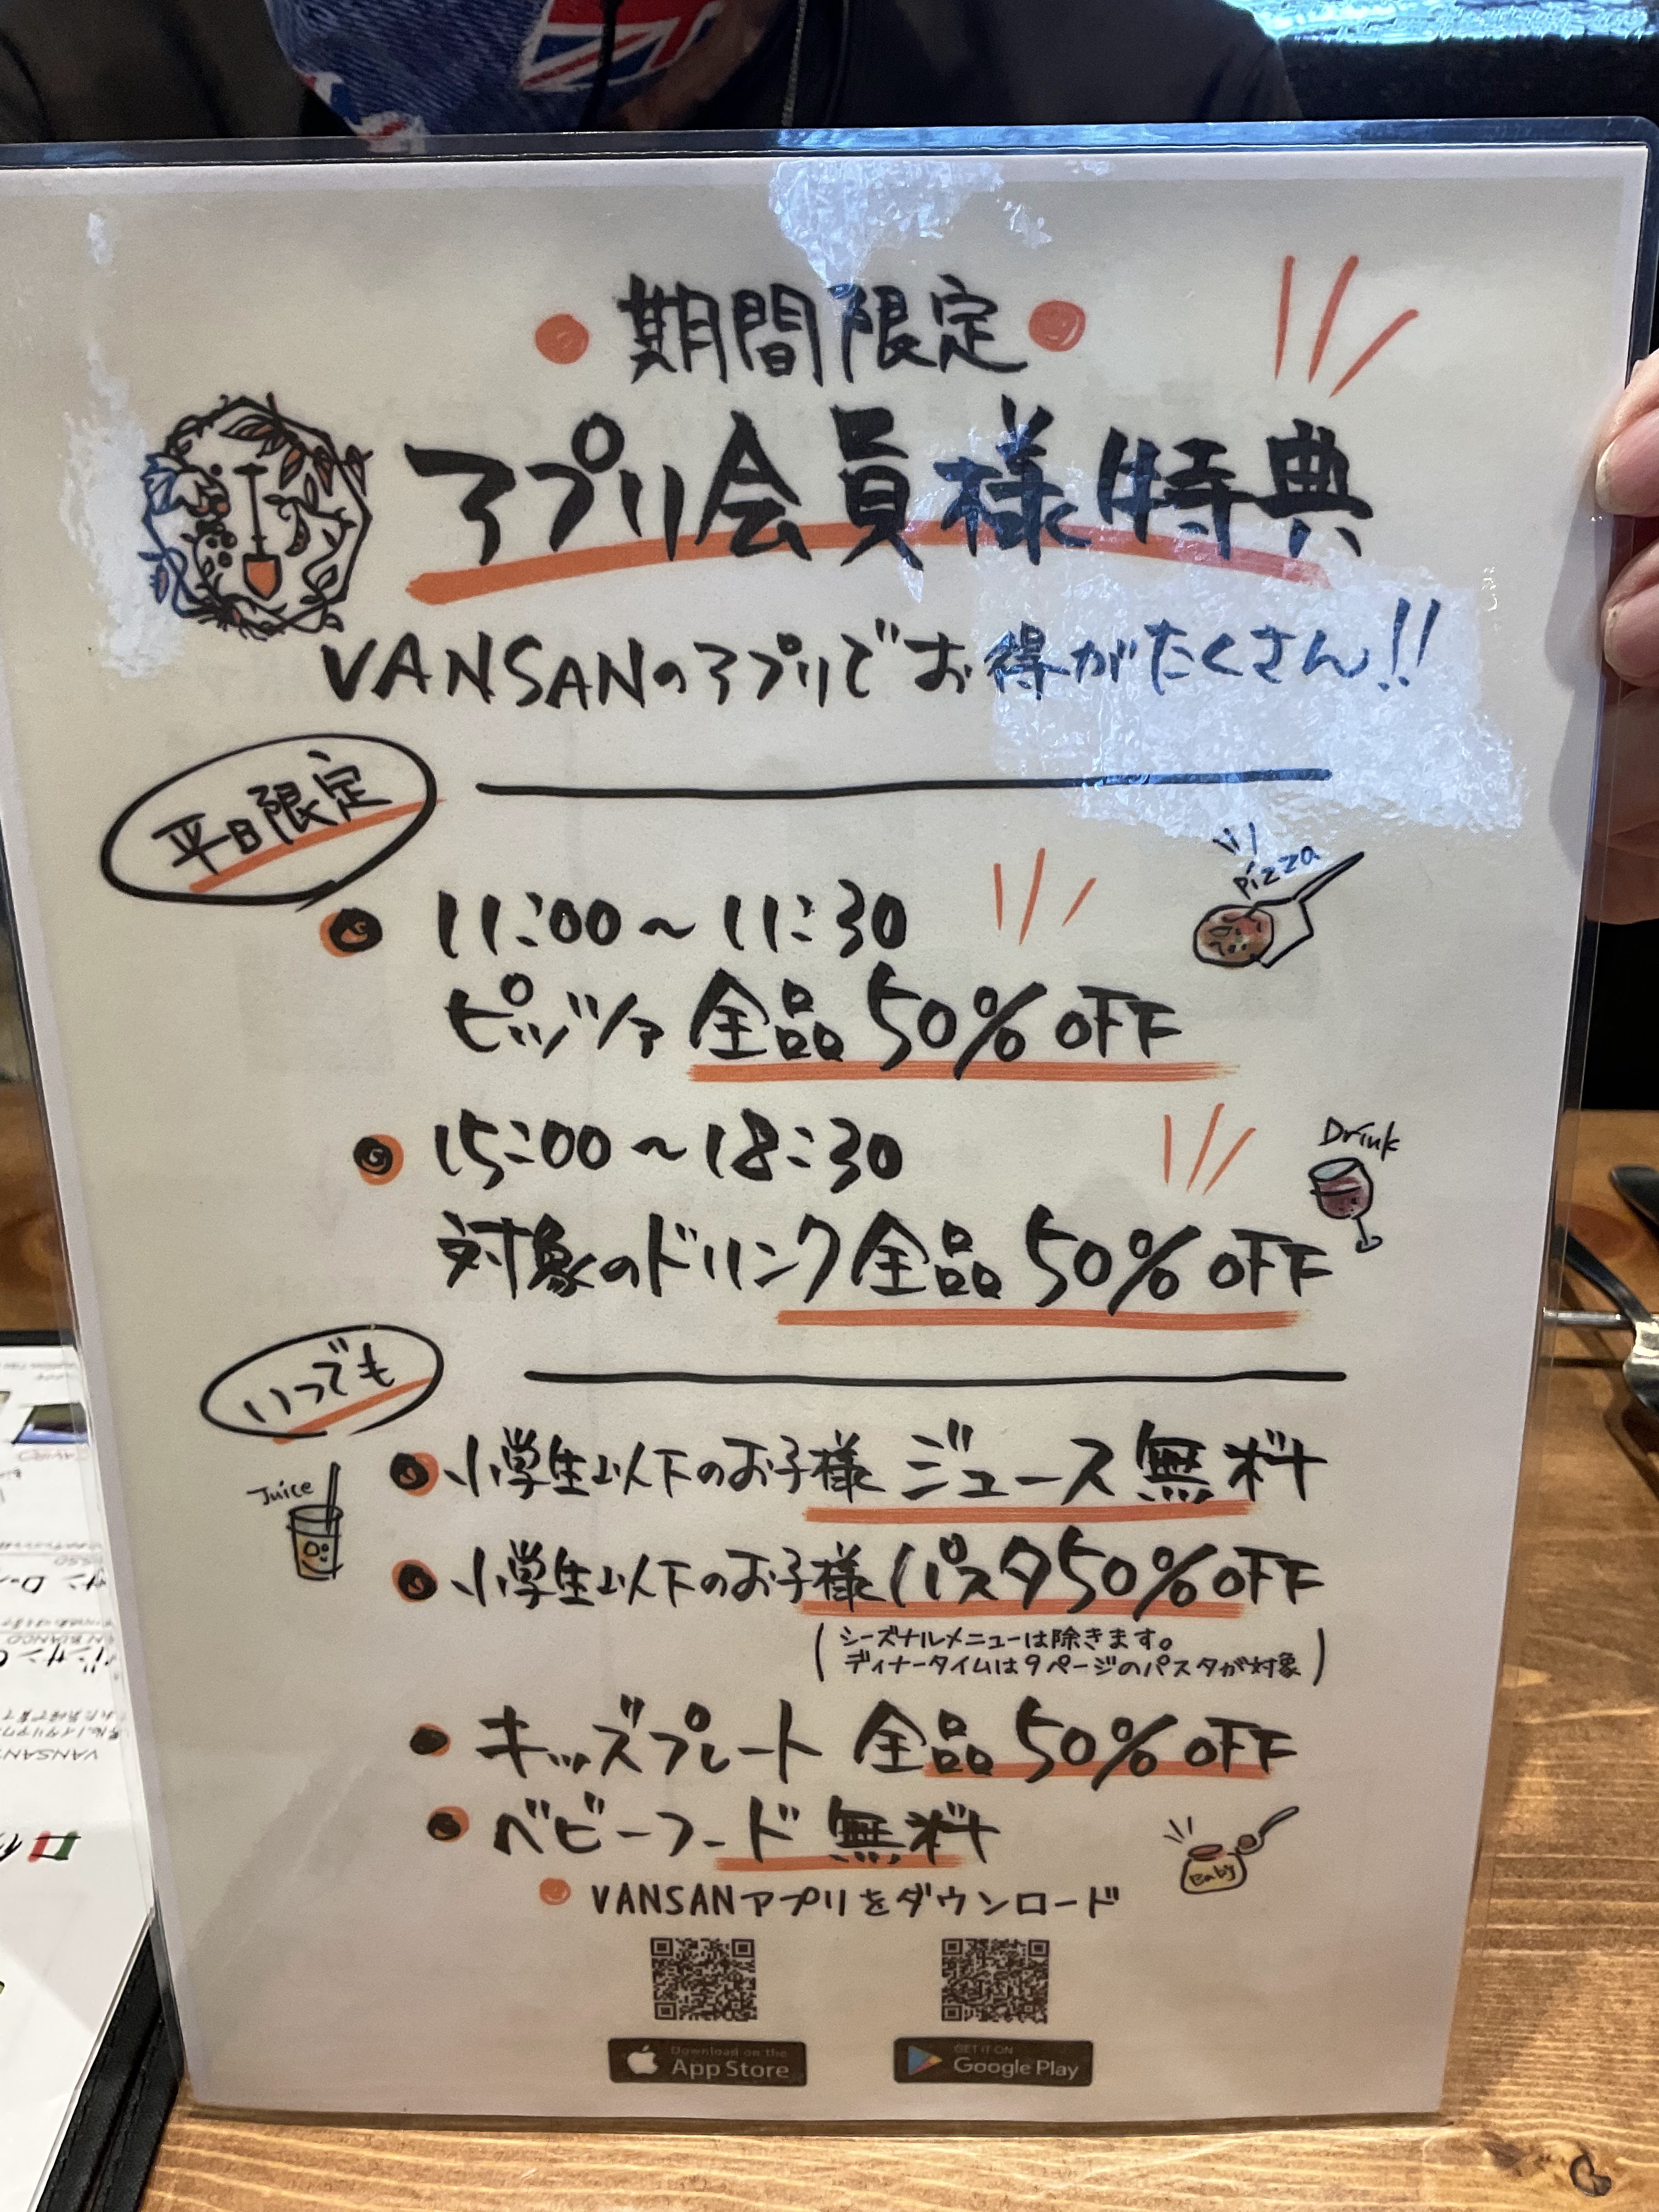 期間限定
アプリ会員様特典
VANSANのアプリでお得がたくさん!!
平日限定
11:00～11:30
Pizza
ピッツァ全品50%OFF
15:00～18:30
Drink
対象のドリンク全品50%OFF
いつでも
小学生以下のお子様 ジュース無料
Juice
小学生以下のお子様パスタ50%OFF
(シーズナルメニューは除きます。
ディナータイムは9ページのパスタが対象)
キッズプレート 全品50%OFF
ベビーフード 無料
Baby
VANSANアプリをダウンロード
Download on the
App Store
GET IT ON
Google Play